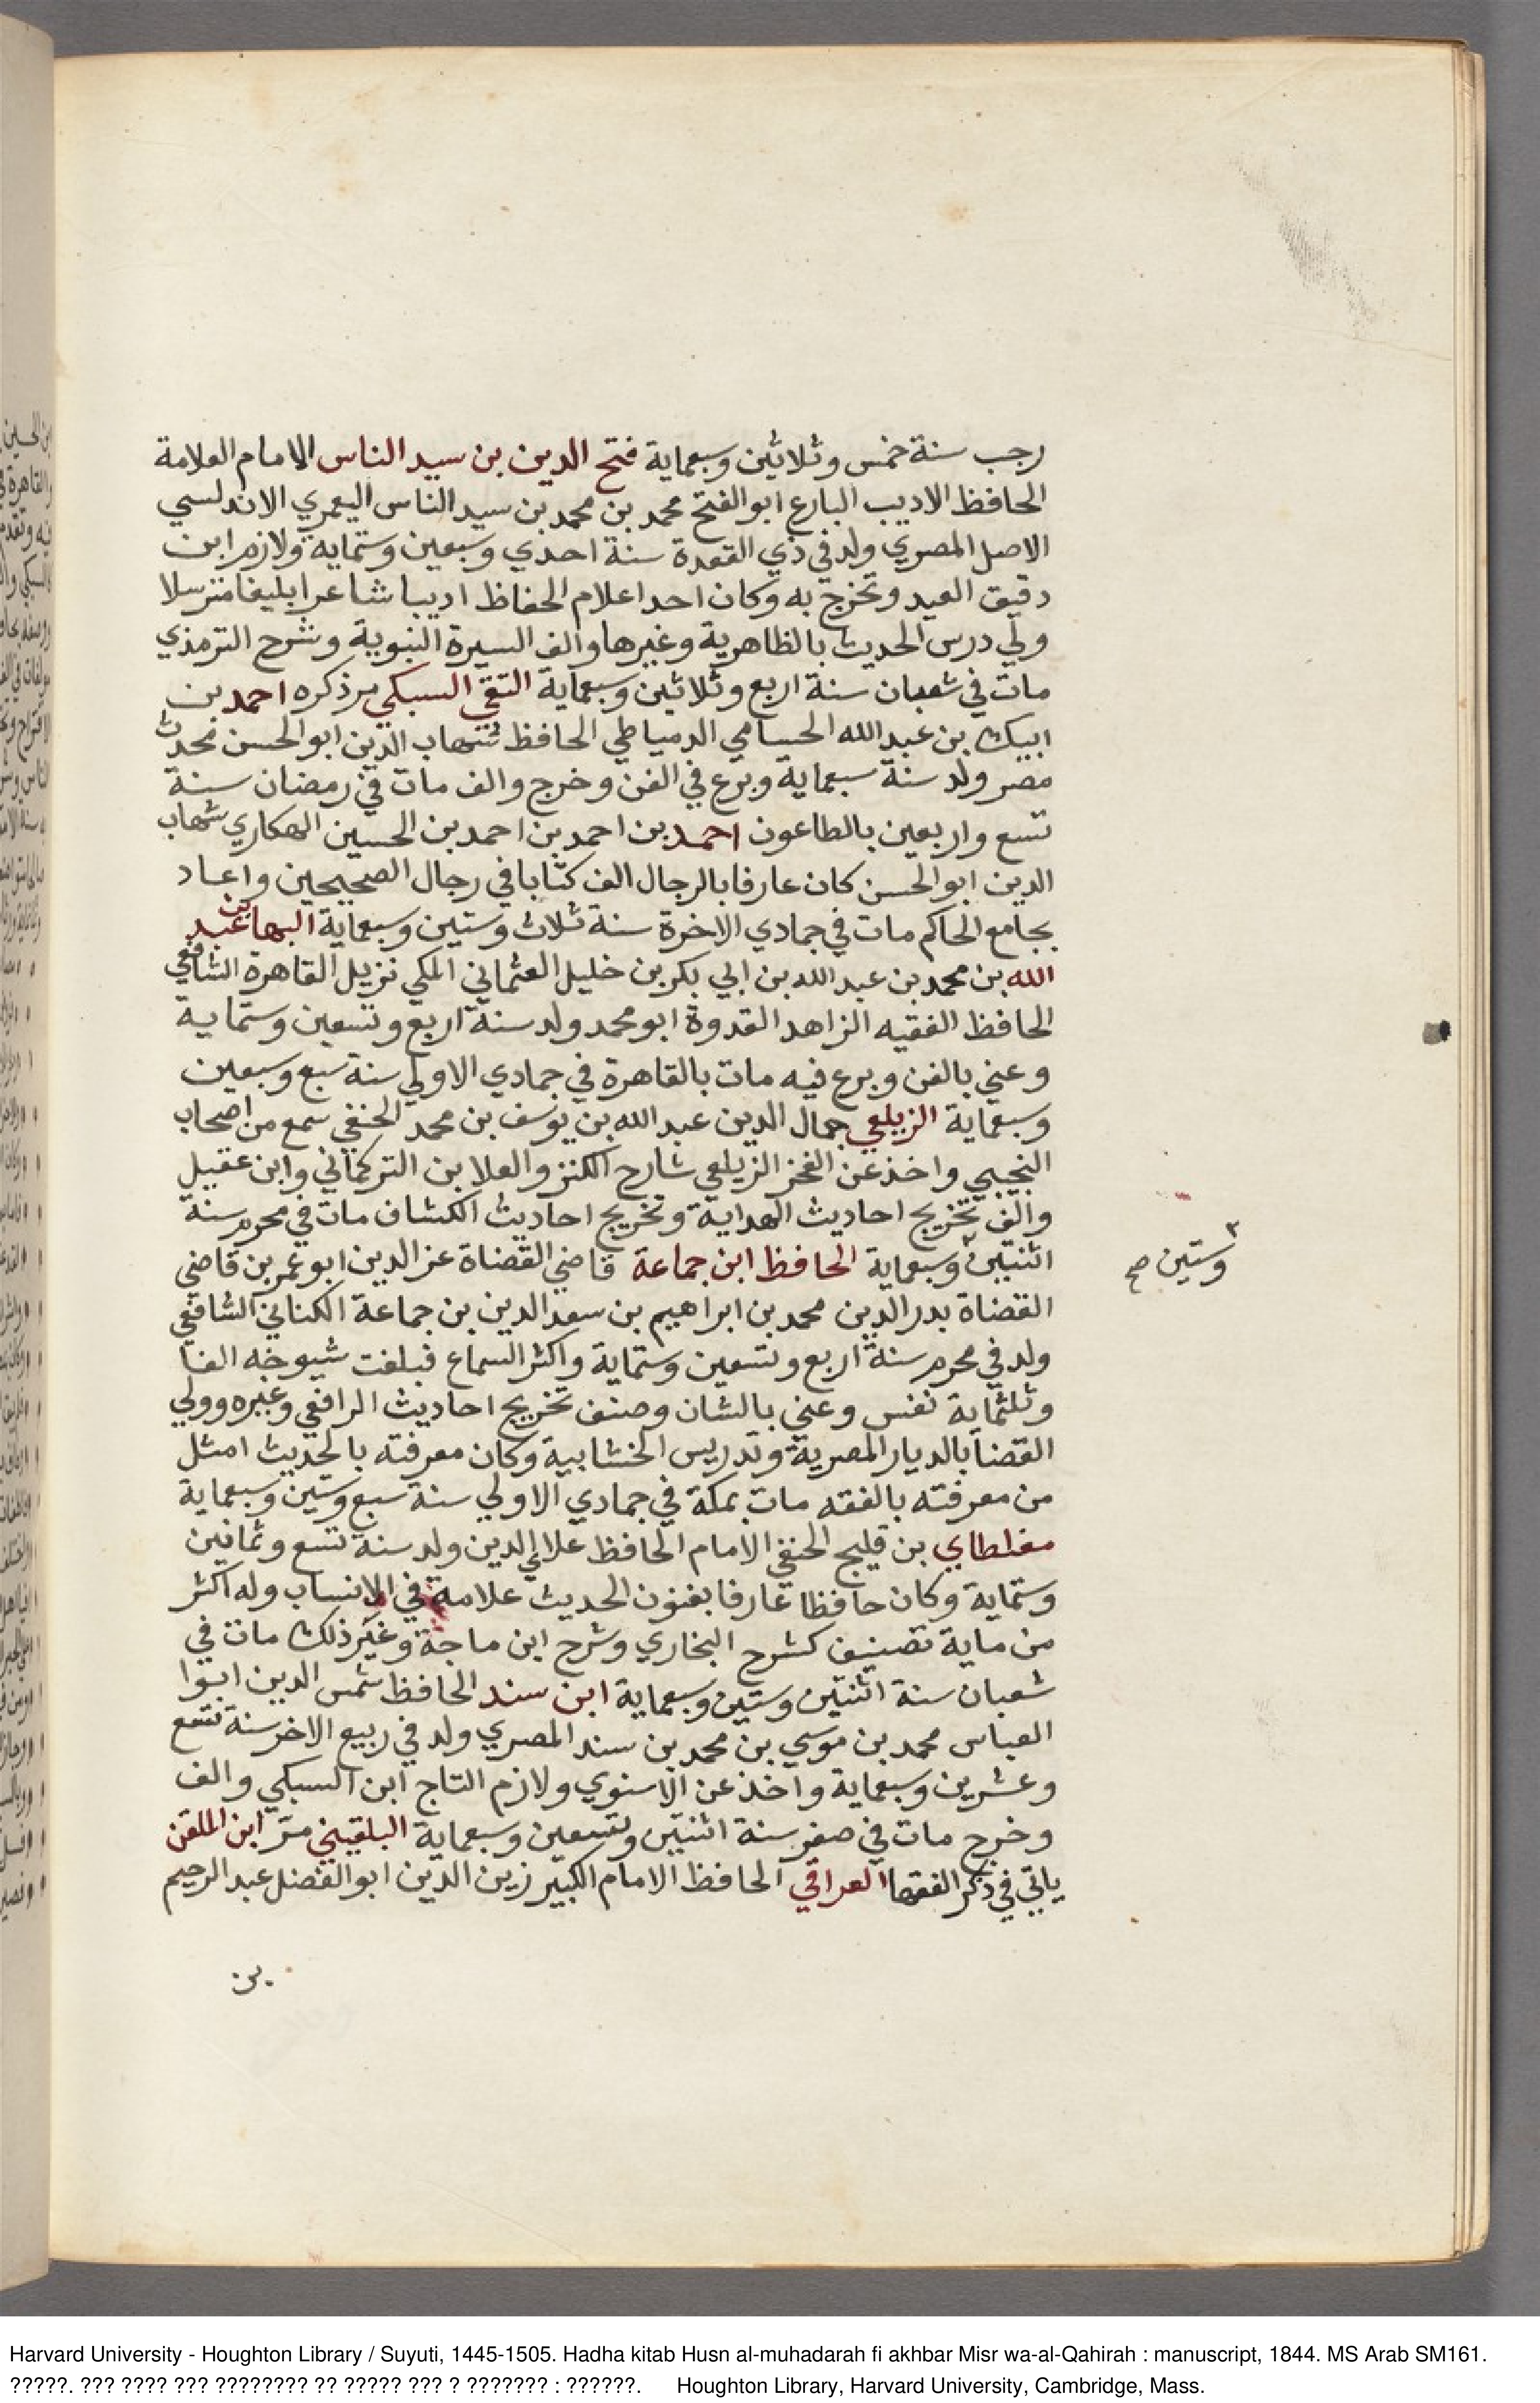 رجب سنة خمس وثلاثين وسبعماية فتح الدين بن سيد الناس الامام العلامة
الحافظ الاديب البارع ابو الفتح محمد بن محمد بن سيد الناس اليعمري الاندلسي
الاصل المصري ولد في ذي القعدة سنة احدي وسبعين وستمايه ولازم ابن
دقيق العيد وتخرج به وكان احد اعلام الحفاظ اديبا شاعرا بليغا مترسلا
ولي درس الحديث بالظاهرية وغيرها والف السيرة النبوية وشرح الترمذي
مات في شعبان سنة اربع وثلاثين وسبعماية التقي السبكي مر ذكره احمد بن
ايبك بن عبد الله الحسامي الدمياطي الحافظ شهاب الدين ابو الحسن محدث
مصر ولد سنة سبعماية وبرع في الفن وخرج والف مات في رمضان سنة
تسع واربعين بالطاعون احمد بن احمد بن احمد بن الحسين الهكاري شهاب
الدين ابو الحسن كان عارفا بالرجال الف كتابا في رجال الصحيحين واعاد
بجامع الحاكم مات في جمادي الاخرة سنة ثلاث وستين وسبعماية البها بن عبد
الله بن محمد بن عبد الله بن ابي بكر بن خليل العثماني المكي نزيل القاهرة الشافعي
الحافظ الفقيه الزاهد القدوة ابو محمد ولد سنة اربع وتسعين وستماية
وعني بالفن وبرع فيه مات بالقاهرة في جمادي الاولي سنة سبع وسبعين
وسبعماية الزيلعي جمال الدين عبد الله بن يوسف بن محمد الحنفي سمع من اصحاب
النجيبي واخذ عن الفخر الزيلعي شارح الكنز والعلا بن التركماني وابن عقيل
والف تخريج احاديث الهداية وتخريج احاديث الكشاف مات في محرم سنة
اثنتين ٢ وسبعماية الحافظ ابن جماعة قاضي القضاة عز الدين ابو عمر بن قاضي
٢ وستين صح
القضاة بدر الدين محمد بن ابراهيم بن سعد الدين بن جماعة الكناني الشافعي
ولد في محرم سنة اربع وتسعين وستماية واكثر السماع فبلغت شيوخه الفا
وثلثماية نفس وعني بالشان وصنف تخريج احاديث الرافعي وغيره وولي
القضا بالديار المصرية وتدريس الخشابية وكان معرفته بالحديث امثل
من معرفته بالفقه مات بمكة في جمادي الاولي سنة سبع وستين وسبعماية
مغلطاي بن قليج الحنفي الامام الحافظ علاء الدين ولد سنة تسع وثمانين
وستماية وكان حافظا عارفا بفنون الحديث علامة في الانساب وله اكثر
من ماية تصنيف كشرح البخاري وشرح ابن ماجة وغير ذلك مات في
شعبان سنة اثنتين وستين وسبعماية ابن سند الحافظ شمس الدين ابوا
العباس محمد بن موسي بن محمد بن سند المصري ولد في ربيع الاخر سنة تسع
وعشرين وسبعماية واخذ عن الاسنوي ولازم التاج ابن السبكي والف
وخرج مات في صفر سنة اثنتين وتسعين وسبعماية البلقيني مر ابن الملقن
ياتي في ذكر الفقها العراقي الحافظ الامام الكبير زين الدين ابو الفضل عبد الرحيم
بن
Harvard University - Houghton Library / Suyuti, 1445-1505. Hadha kitab Husn al-muhadarah fi akhbar Misr wa-al-Qahirah : manuscript, 1844. MS Arab SM161.
?????. ??? ???? ??? ???????? ?? ????? ??? ? ??????? : ??????. Houghton Library, Harvard University, Cambridge, Mass.